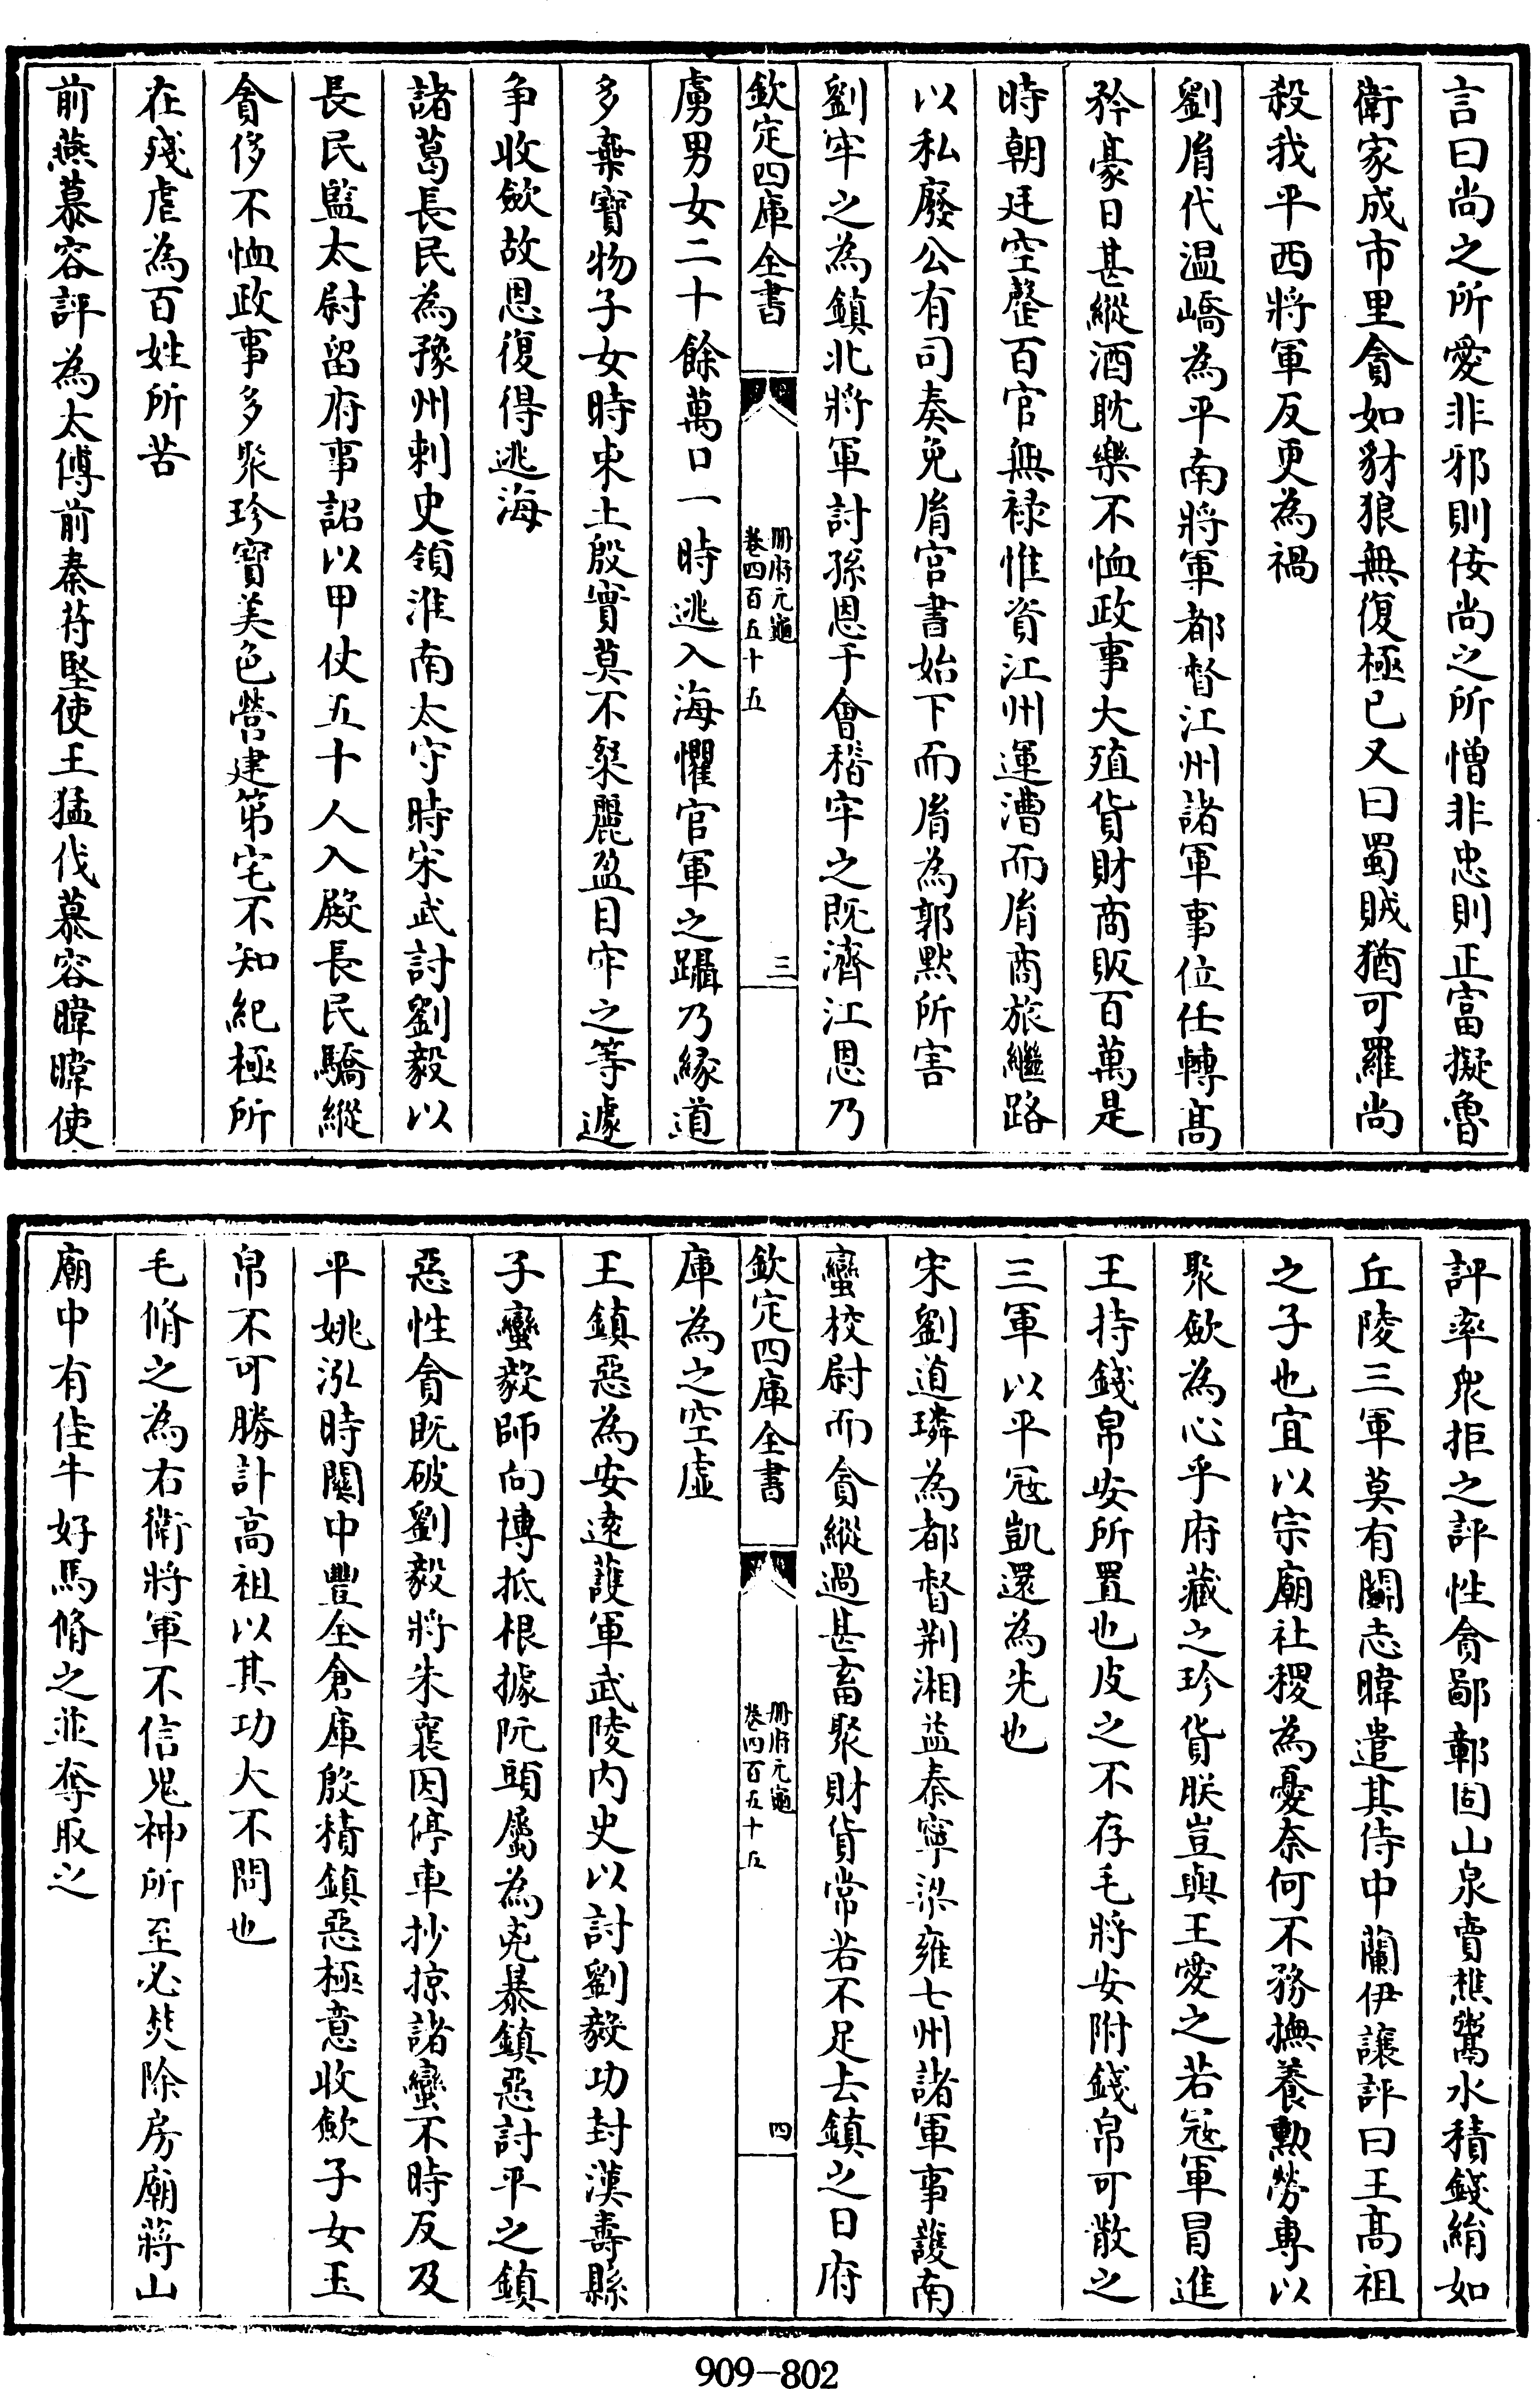 言曰尚之所愛非邪則佞尚之所憎非忠則正富擬魯
衛家成市里貪如豺狼無復極已又曰蜀賊猶可羅尚
殺我平西將軍反更為禍
劉㣧代温嶠為平南將軍都督江州諸軍事位任轉髙
矜豪日甚縱酒耽樂不恤政事大殖貨財商販百萬是
時朝廷空罄百官無禄惟資江州運漕而㣧商旅繼路
以私廢公有司奏免㣧官書始下而㣧為郭黙所害
劉牢之為鎮北將軍討孫恩于會稽牢之既濟江恩乃
欽定四庫全書
冊府元龜
卷四百五十五
三
虜男女二十餘萬口一時逃入海懼官軍之躡乃緣道
多棄寶物子女時東土殷實莫不粲麗盈目牢之等遽
争收斂故恩復得逃海
諸葛長民為豫州刺史領淮南太守時宋武討劉毅以
長民監太尉留府事詔以甲仗五十人入殿長民驕縱
貪侈不恤政事多聚珍寶美色營建第宅不知紀極所
在殘虐為百姓所苦
前燕慕容評為太傅前秦苻堅使王猛伐慕容暐暐使
評率衆拒之評性貪鄙鄣固山泉賣樵鬻水積錢絹如
丘陵三軍莫有鬬志暐遣其侍中蘭伊讓評曰王髙祖
之子也宜以宗廟社稷為憂奈何不務撫養勲勞專以
聚斂為心乎府藏之珍貨朕豈與王愛之若冦軍冒進
王持錢帛安所置也皮之不存毛將安附錢帛可散之
三軍以平冦凱還為先也
宋劉道璘為都督荆湘益秦寧梁雍七州諸軍事護南
蠻校尉而貪縱過甚畜聚財貨常若不足去鎮之日府
欽定四庫全書
冊府元龜
卷四百五十五
四
庫為之空虛
王鎮惡為安逺護軍武陵内史以討劉毅功封漢壽縣
子蠻毅師向博抵根據阮頭屬為兇暴鎮惡討平之鎮
惡性貪既破劉毅將朱襄因停車抄掠諸蠻不時反及
平姚泓時關中豐全倉庫殷積鎮惡極意收斂子女玉
帛不可勝計高祖以其功大不問也
毛脩之為右衛將軍不信鬼神所至必焚除房廟蔣山
廟中有佳牛好馬脩之並奪取之
909-802